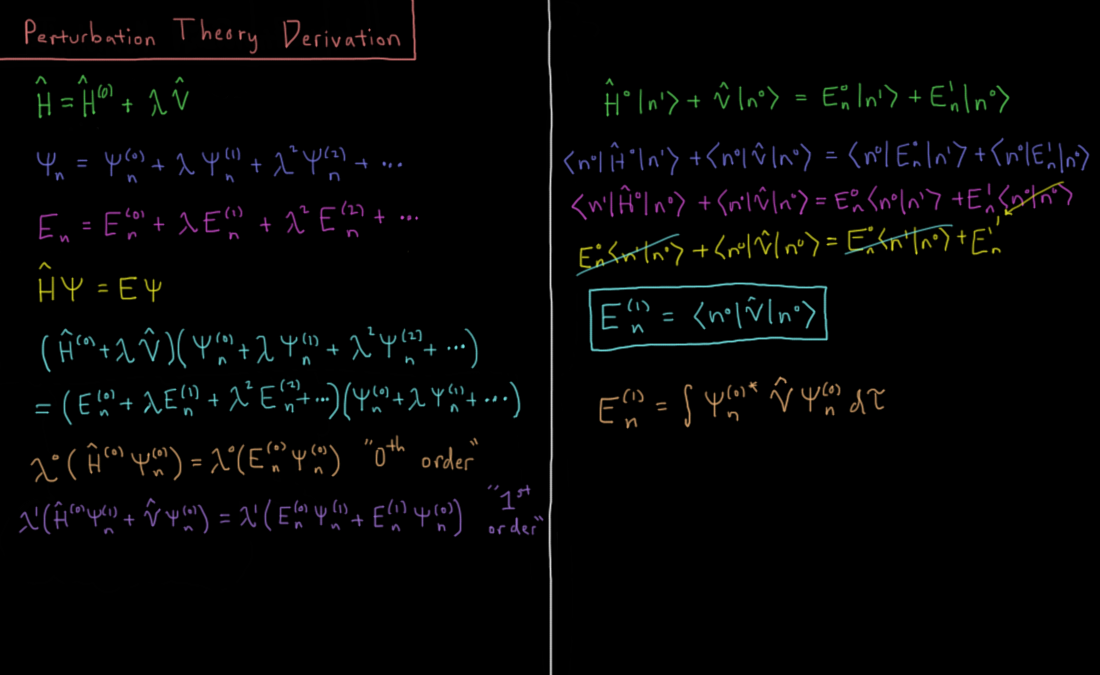 Perturbation Theory Derivation
Ĥ = Ĥ⁽⁰⁾ + λV̂
Ψₙ = Ψₙ⁽⁰⁾ + λΨₙ⁽¹⁾ + λ²Ψₙ⁽²⁾ + ⋯
Eₙ = Eₙ⁽⁰⁾ + λEₙ⁽¹⁾ + λ²Eₙ⁽²⁾ + ⋯
ĤΨ = EΨ
(Ĥ⁽⁰⁾ + λV̂)(Ψₙ⁽⁰⁾ + λΨₙ⁽¹⁾ + λ²Ψₙ⁽²⁾ + ⋯)
= (Eₙ⁽⁰⁾ + λEₙ⁽¹⁾ + λ²Eₙ⁽²⁾ + ⋯)(Ψₙ⁽⁰⁾ + λΨₙ⁽¹⁾ + ⋯)
λ⁰(Ĥ⁽⁰⁾Ψₙ⁽⁰⁾) = λ⁰(Eₙ⁽⁰⁾Ψₙ⁽⁰⁾) "0ᵗʰ order"
λ¹(Ĥ⁽⁰⁾Ψₙ⁽¹⁾ + V̂Ψₙ⁽⁰⁾) = λ¹(Eₙ⁽⁰⁾Ψₙ⁽¹⁾ + Eₙ⁽¹⁾Ψₙ⁽⁰⁾) "1ˢᵗ
order"
Ĥ⁰|n¹⟩ + V̂|n⁰⟩ = Eₙ⁰|n¹⟩ + Eₙ¹|n⁰⟩
⟨n⁰|Ĥ⁰|n¹⟩ + ⟨n⁰|V̂|n⁰⟩ = ⟨n⁰|Eₙ⁰|n¹⟩ + ⟨n⁰|Eₙ¹|n⁰⟩
⟨n¹|Ĥ⁰|n⁰⟩ + ⟨n⁰|V̂|n⁰⟩ = Eₙ⁰⟨n⁰|n¹⟩ + Eₙ¹⟨n⁰|n⁰⟩
Eₙ⁰⟨n¹|n⁰⟩ + ⟨n⁰|V̂|n⁰⟩ = Eₙ⁰⟨n¹|n⁰⟩ + Eₙ¹
Eₙ⁽¹⁾ = ⟨n⁰|V̂|n⁰⟩
Eₙ⁽¹⁾ = ∫ Ψₙ⁽⁰⁾* V̂ Ψₙ⁽⁰⁾ dτ